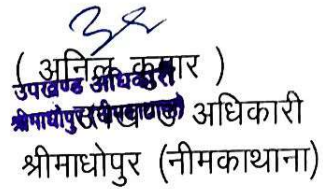 ( अनिल कुमार )
उपखण्ड अधिकारी
श्रीमाधोपुर (नीमकाथाना)
उपखण्ड अधिकारी
श्रीमाधोपुर (नीमकाथाना)